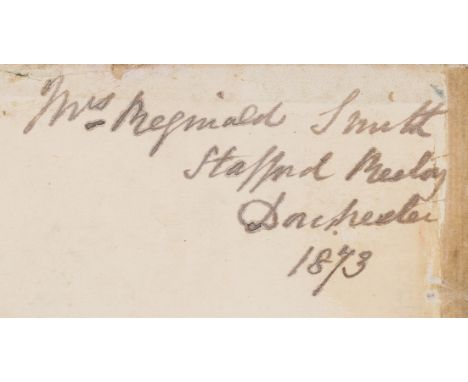 Mrs Reginald Smith
Stafford Rectory
Dorchester
1873